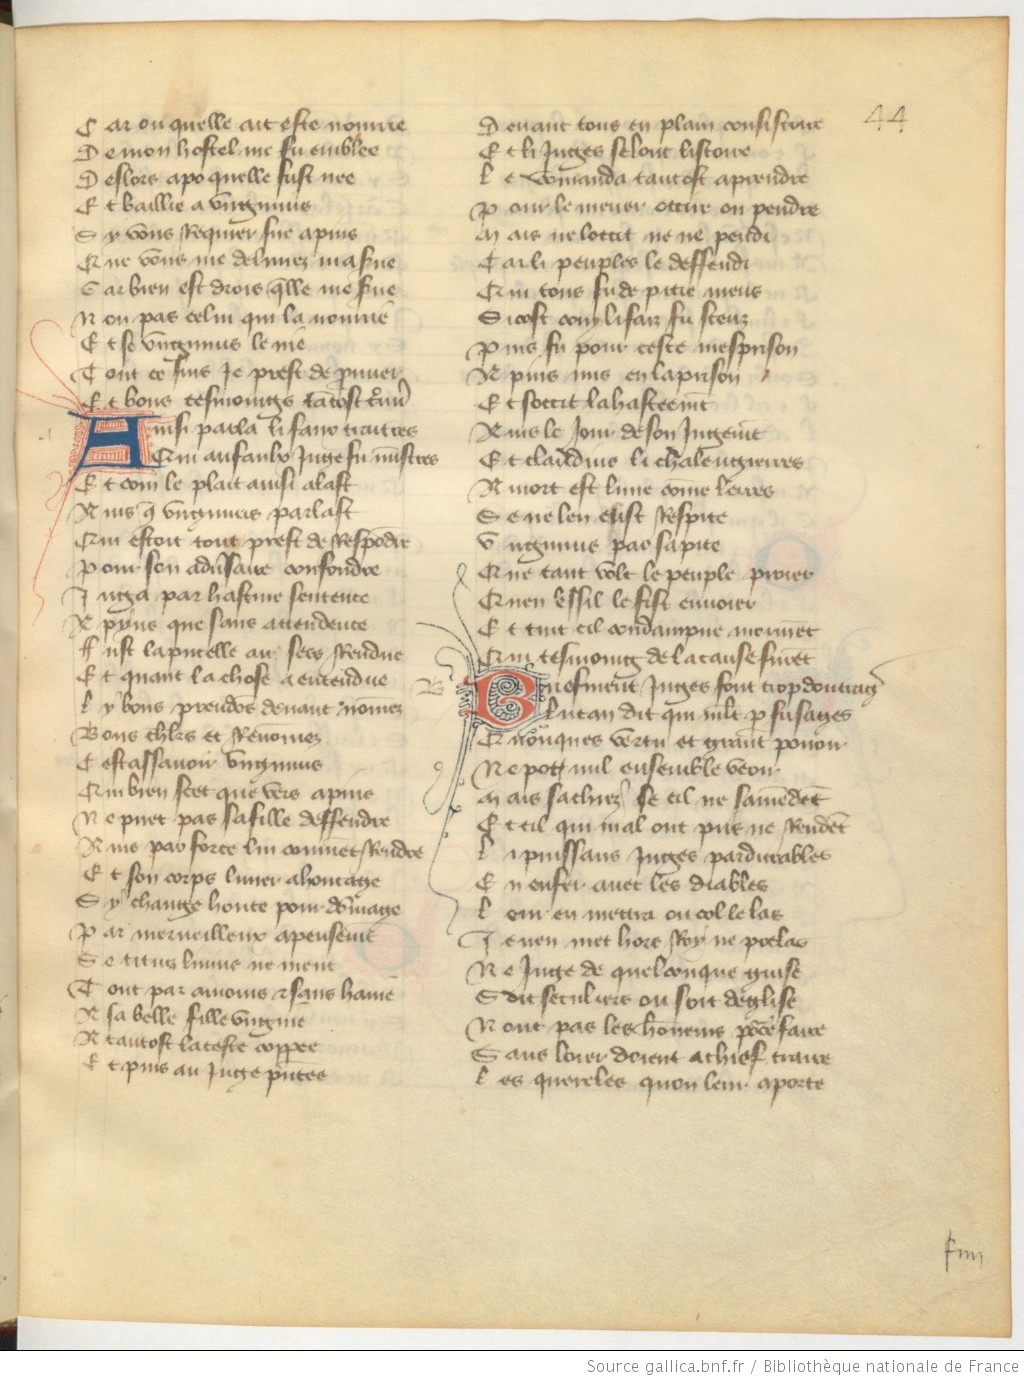 44
C ar ou quelle ait este nourrie
D e mon hostel me fu emblee
D eslors a po quelle fust nee
E t baillie a virginius
S y vous Requier sire apius
Q ue vous me deliurez ma serue
C ar bien est drois qelle me serue
N on pas celui qui la nourrie
E t se virginius le nie
T out ce suis Je prest de prouuer
E t bons tesmoings
A insi parla li faux traittres
Qui au faulx Juge fu ministres
E t com le plait ainsi alast
A ins que virginius parlast
Qui estoit tout prest de Respondre
P our son aduersaire confondre
J uga par hastiue sentence
A pyus que sans attendence
F ust la pucelle au sers Rendue
E t quant la chose a entendue
L y bons preudoms deuant nomez
B ons chlrs et Renomez
C est assauoir virginius
Qui bien scet que vers apius
N e puet pas sa fille deffendre
A ins par force lui conuient Rendre
E t son corps liurer a hontage
S y change honte pour domage
P ar merueilleux apensement
S e titus liuius ne ment
C ar par amours et sans haine
A sa belle fille virgine
A tantost la teste coppee
E t puis au Juge presentee
D euant tous en plain consistoire
E t li Juges selont listoire
L e commanda tantost a prendre
P our le mener occire ou pendre
M ais ne loccit ne ne pendi
C ar li peuples le deffendi
Qui tous fu de pitie meus
S i tost com li faiz fu sceuz
P uis fu pour ceste mesprison
A pius mis en la prison
E t soccit la hastiuement
A ins le Jour de son Jugement
E t claudius li chalengieres
A mort est liure come lerres
S e ne len eust Respite
V irginius par sa pite
Q ue tant volt le peuple prier
Q uen Essil le fist enuoier
E t tuit cil condampne moururent
Qui tesmoing de la cause furent
B riefment Juges font trop doultrages
Lucan dit qui mlt fu sages
Q uonques vertu et grant pouoir
N e pot nul ensemble veoir
M ais sachiez se cil ne samendent
E t cil qui mal ont pris ne Rendent
L i puissans Juges pardurables
E n enfer auec les diables
L eur en mettra ou col le las
J e nen met hors Roy ne prelas
N e Juge de quelconque guise
S oit seculiers ou soit deglise
N ont pas les honneurs pour ce faire
S ans loier doient a chief traire
L es quereles quon leur aporte
Source gallica.bnf.fr / Bibliothèque nationale de France